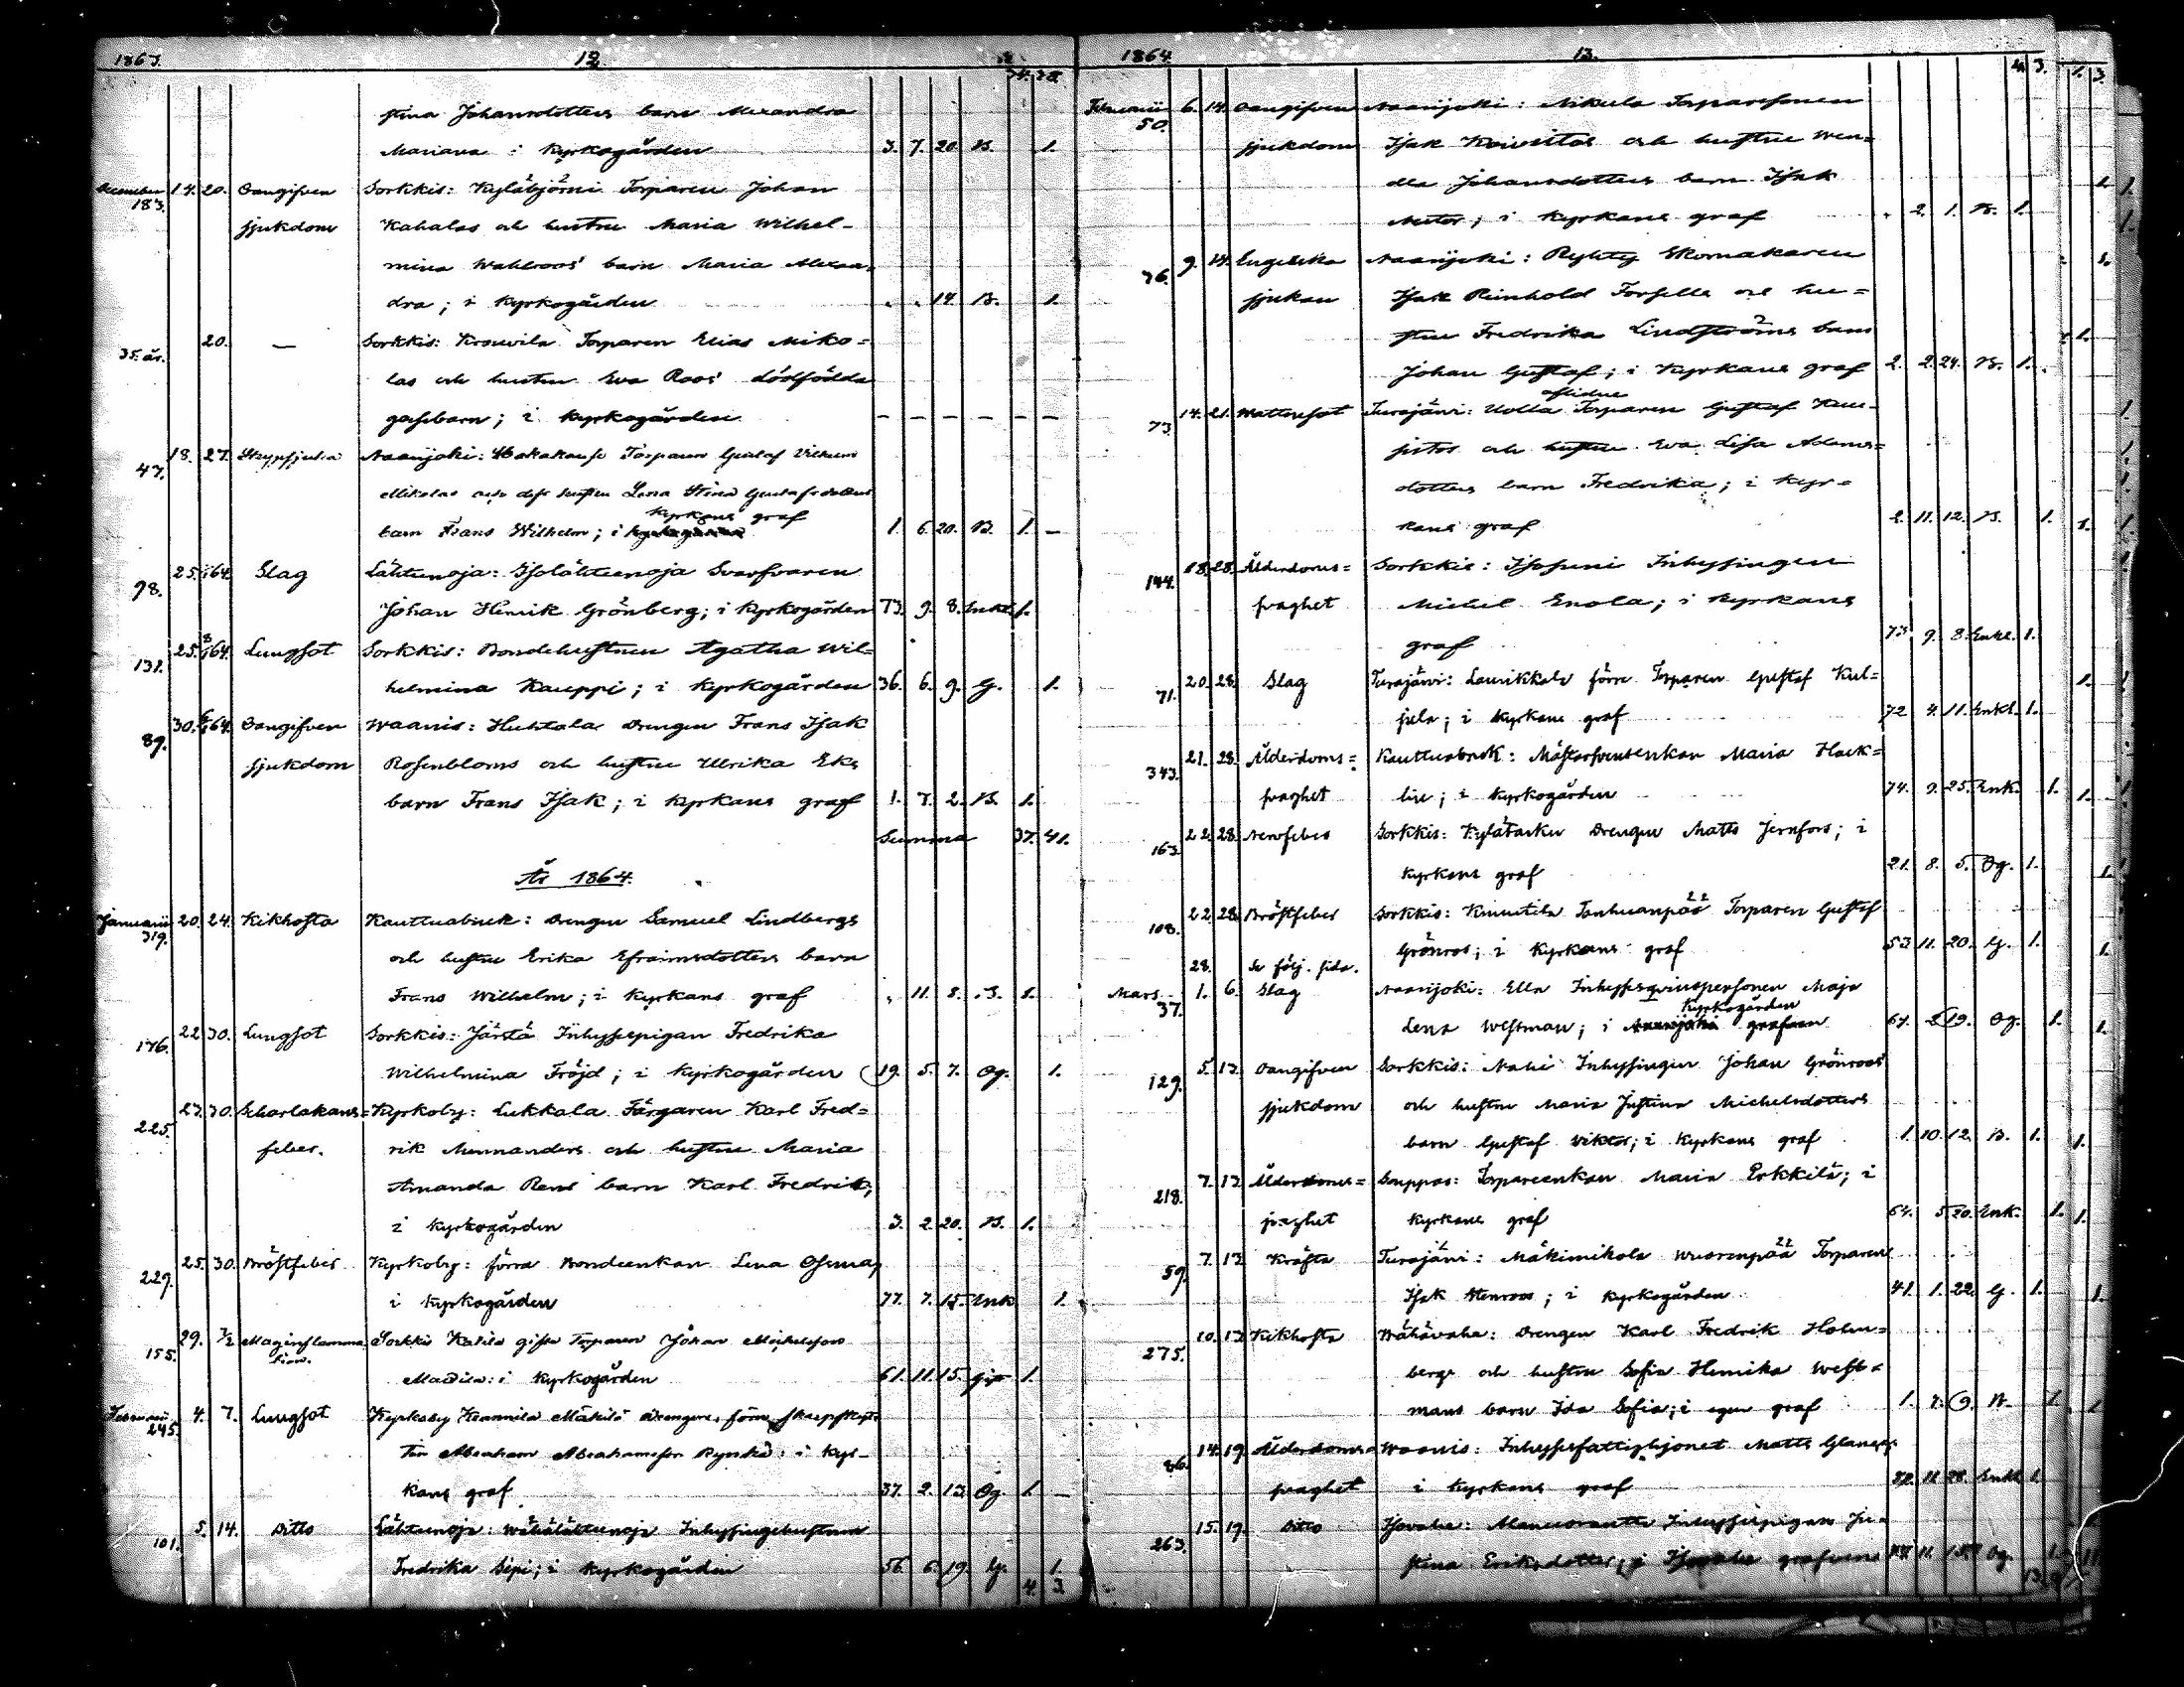 1863. 12.
stina Johansdotters barn Alexandra
Mariana i kyrkogården 3. 7. 20. B. 1.
December 183. 14. 20. Oangifven Sorkkis: Kyläbjörni Torparen Johan
sjukdom Kahalas och hustru Maria Wilhel-
mina Wahlroos' barn Maria Alexan-
dra; i kyrkogården " " 14. B. 1.
35. år. 20. — Sorkkis: Krouvila Torparen Elias Miko-
las och hustru Eva Roos' dödfödda
gossebarn; i kyrkogården — — — — — —
47. 18. 27. Strypsjuka Naarijoki: Torparen Gustaf Vilhelm
Mikolas och dess hustru Lena Stina Gustafsdotters
kyrkans graf
barn Frans Wilhelm; i 1. 6. 20. B. 1. —
98. 25. 64. Slag Lähteenoja: Isolähteenoja Svarfvaren
Johan Henrik Grönberg; i kyrkogården 73. 9. 8. Enkl. 1.
131. 25. 64. Lungsot Sorkkis: Bondehustrun Agatha Wil-
helmina Kauppi; i kyrkogården 36. 6. 9. G. 1.
89. 30. 64. Oangifven Waanis: Huhtala Drengen Frans Isak
sjukdom Rosenbloms och hustru Ulrika Eks
barn Frans Isak; i kyrkans graf 1. 7. 2. B. 1.
Summa 37. 41.
År 1864.
Januarii 319. 20. 24. Kikhosta Kauttuabruk: Drengen Samuel Lindbergs
och hustru Erika Efraimsdotters barn
Frans Wilhelm; i kyrkans graf " 11. 8. B. 1.
176. 22. 30. Lungsot Sorkkis: Järstä Inhysespigan Fredrika
Wilhelmina Fröjd; i kyrkogården 19. 5. 7. Og. 1.
225. 27. 30. Scharlakans- Kyrkoby: Lukkala Färgaren Karl Fred-
feber. rik Mennanders och hustru Maria
Amanda Rens barn Karl Fredrik;
i kyrkogården 3. 2. 20. B. 1.
229. 25. 30. Bröstfeber Kyrkoby: förra Bondeenkan Lena
i kyrkogården 77. 7. 15. Enk. 1.
155. 29. 7/2 Maginflamma- Sorkkis Katila gifta Torparen Johan Michelsson
tion.
i kyrkogården 61. 11. 15. gift 1.
Februarii 245. 4. 7. Lungsot Kyrkoby Mäkilä
Abraham Abrahamsson i kyr-
kans graf 37. 2. 13. Og. 1. —
101. 5. 14. Ditto Lähteenoja: Wähälähteenoja Inhysingehustrun
Fredrika Sipi; i kyrkogården 56. 6. 19. G. 1.
4. 3.
1864. 13. 4. 3.
Februarii 50. 6. 14. Oangifven Naarijoki: Mikula Torparesonen
sjukdom Isak Koivistos och hustru Wen-
dla Johansdotters barn Isak
Nestor; i kyrkans graf " 2. 1. B. 1.
76. 9. 14. Engelska Naarijoki: Ryhty Skomakaren
sjukan Isak Reinhold Forsells och hu-
stru Fredrika Lindströms barn
Johan Gustaf; i kyrkans graf 2. 2. 24. B. 1.
aflidne
73. 14. 21. Wattensot Turajärvi: Uolla Torparen Gustaf
och hustru Eva Lisa Adams-
dotters barn Fredrika; i kyr-
kans graf 2. 11. 12. B. 1.
144. 18. 28. Ålderdoms- Sorkkis: Inhysingen
svaghet Michel Enola; i kyrkans
graf 73. 9. 8. Enkl. 1.
71. 20. 28. Slag Turajärvi: Laurikkala förre Torparen Gustaf Kul-
jula; i kyrkans graf 72. 4. 11. Enkl. 1.
343. 21. 28. Ålderdoms- Kauttuabruk: Mästarsvensenkan Maria Hack-
svaghet lin; i kyrkogården 74. 9. 25. Enk. 1.
163. 22. 28. Nervfeber Sorkkis: Drengen Matts Jernfors; i
kyrkans graf 21. 8. 5. Og. 1.
108. 22. 28. Bröstfeber Sorkkis: Knuutila Tanhuanpää Torparen Gustaf
Grönros; i kyrkans graf 53. 11. 20. G. 1.
28. Se följ. sida.
Mars 37. 1. 6. Slag Naarijoki: Ella Inhysesqvinspersonen Maja
kyrkogården
Lena Westman; i 64. 5. 19. Og. 1.
129. 5. 13. Oangifven Sorkkis: Inhysingen Johan Grönroos'
sjukdom och hustru Maria Justina Michelsdotters
barn Gustaf Viktor; i kyrkans graf 1. 10. 12. B. 1.
218. 7. 13. Ålderdoms- Souppas: Torpareenkan Maria Erkkilä; i
svaghet kyrkans graf 64. 5. 20. Enk. 1.
59. 7. 13. Kräfta Turajärvi: Mäkimikola Wuorenpää Torparen
Isak Stenroos; i kyrkogården 41. 1. 22. G. 1.
275. 10. 13. Kikhosta Wähävaha: Drengen Karl Fredrik Holm-
bergs och hustru Sofia Henrika West-
mans barn Ida Sofia; i egen graf 1. 7. 9. B. 1.
86. 14. 19. Ålderdoms- Waanis: Inhysesfattighjonet Matts
svaghet i kyrkans graf 11. 28. Enkl. 1.
263. 15. 19. Ditto Isovaha: Inhysespigan Ju-
stina Eriksdotter; i Isovaha grafven 11. 15. Og. 1.